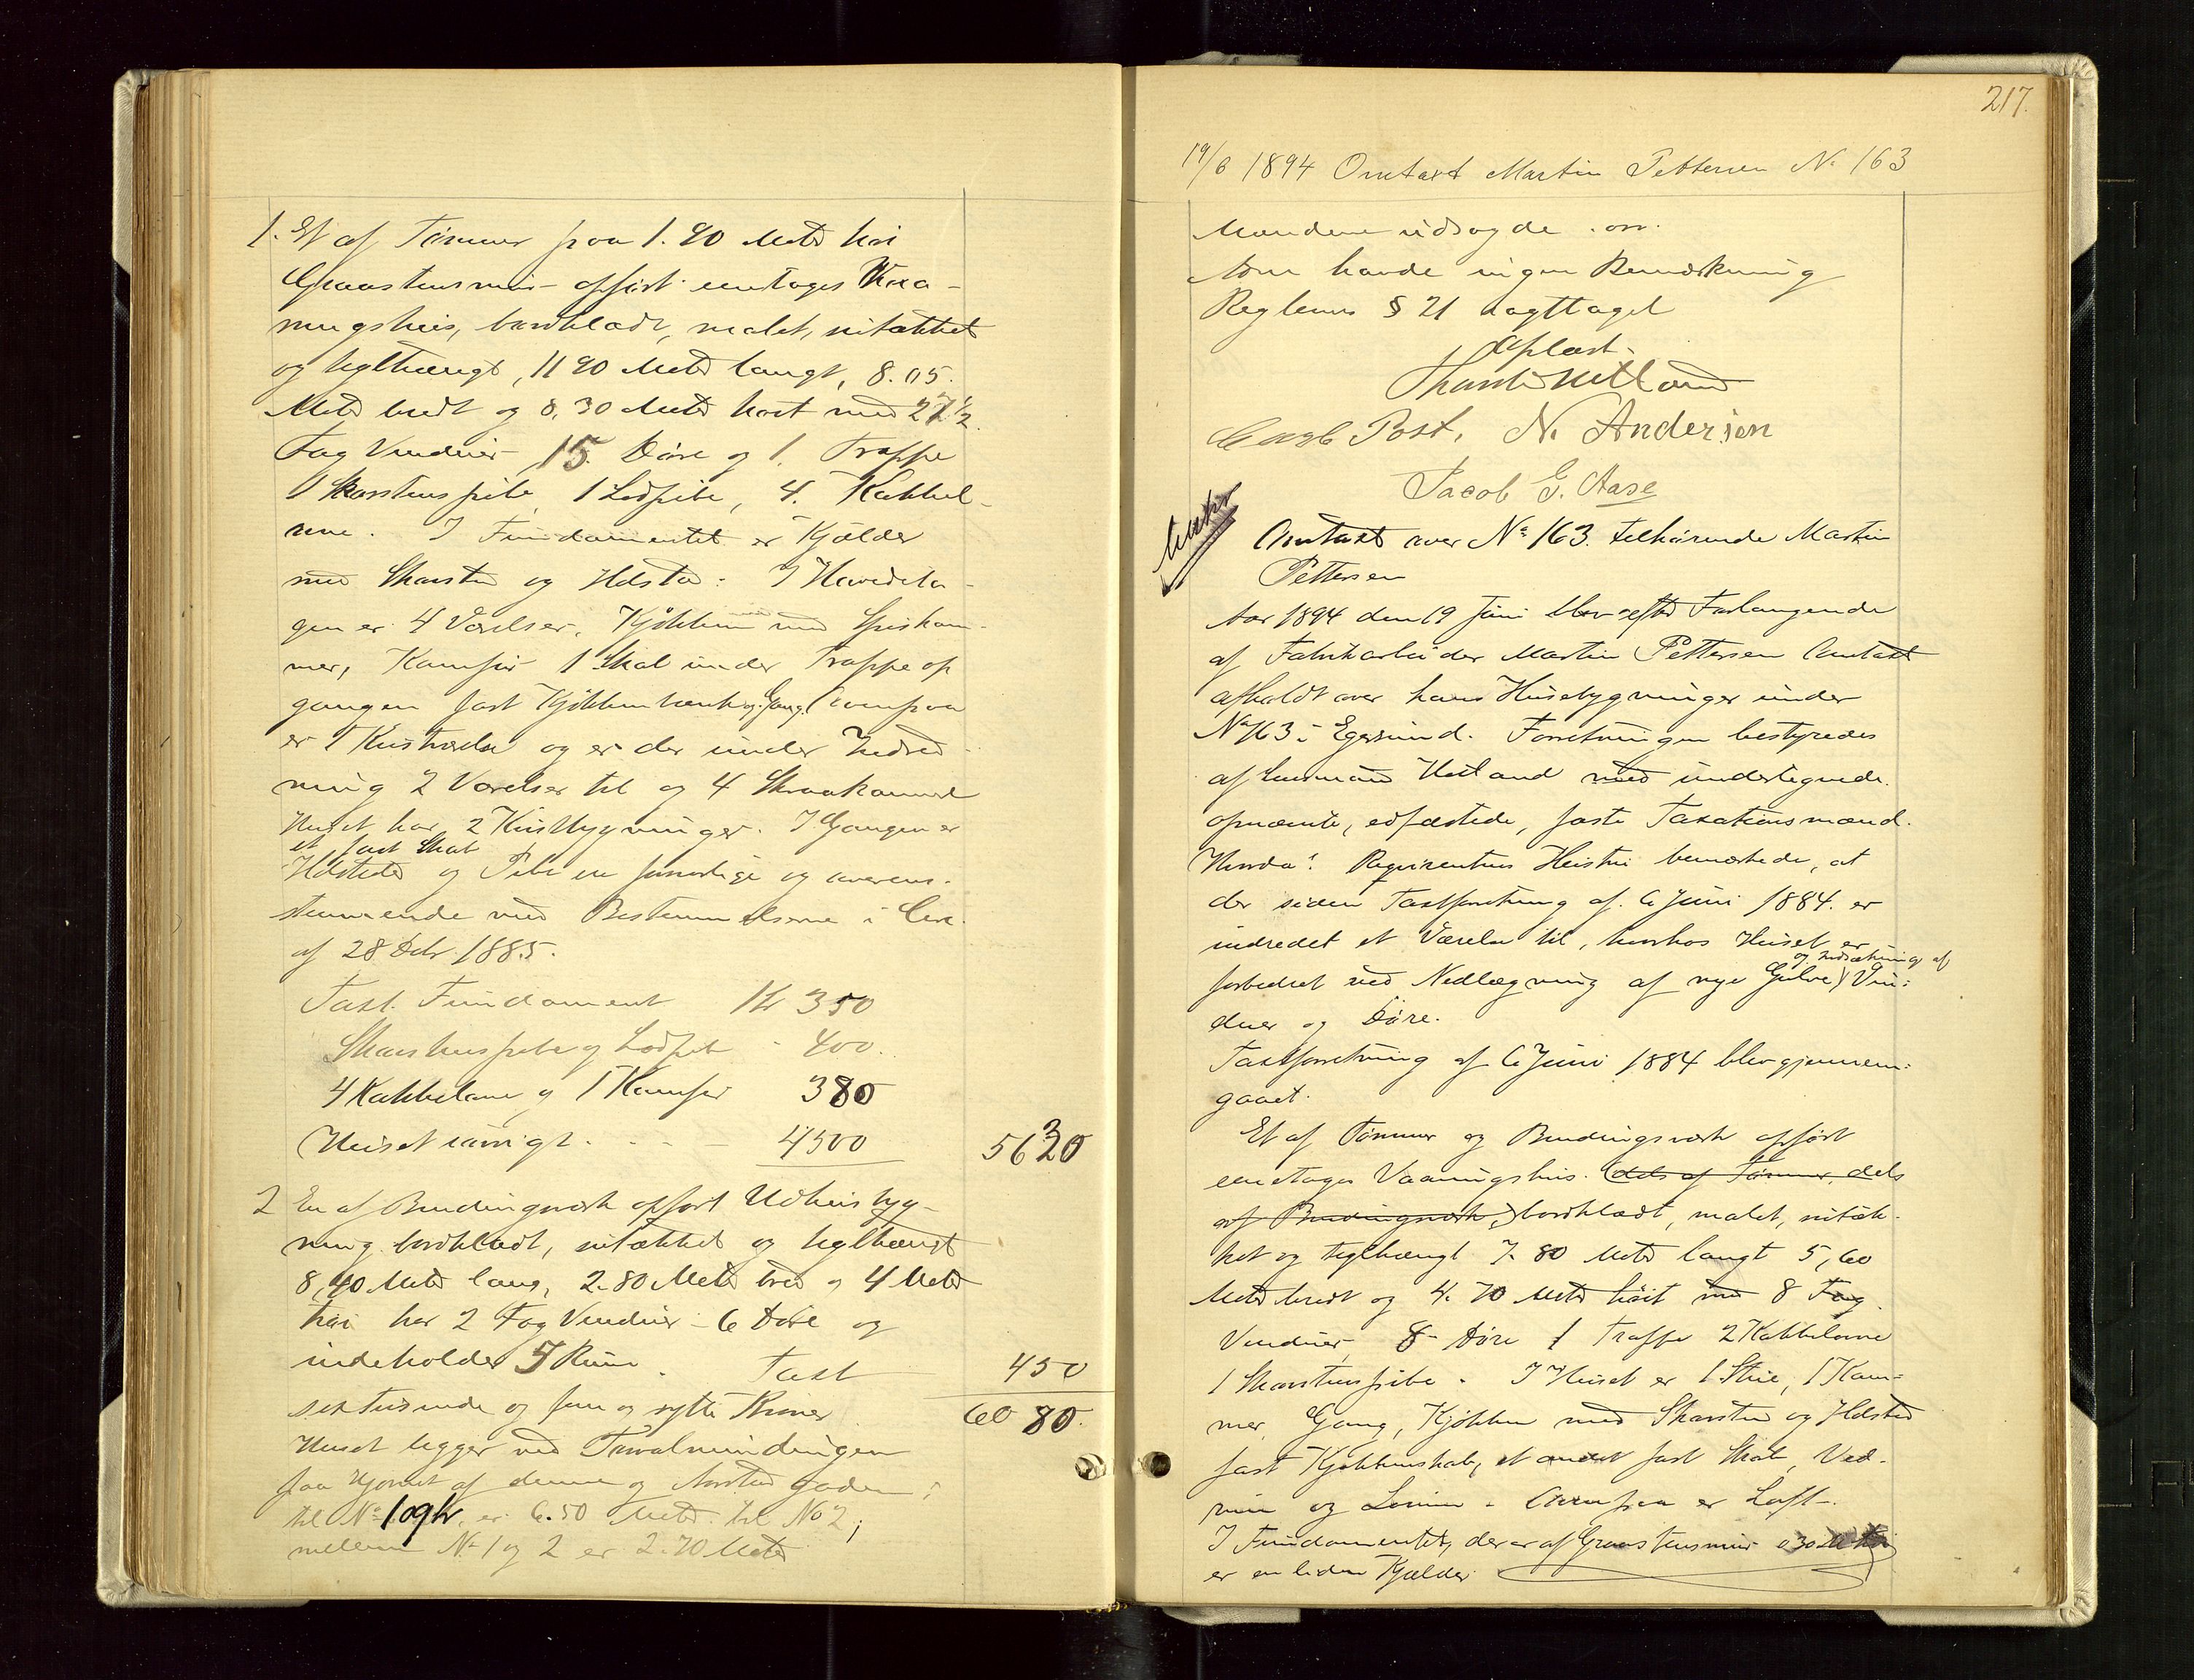 1. Et af Tømmer paa 1.90 Meter høi
Graastensmur opført eenetages Vaa-
ningshus, bordklædt, malet, nitækket
og teglhængt, 11 90 Meter langt, 8.05.
Meter bredt og 8.30 Meter høit med 27½
Fag Vinduer 15. Døre og 1. Trappe
1 Skorstenspibe, 1 Lodpibe, 4. Kakkel-
ovne. I Fundamentet er Kjælder
med Skorsten og Ildsted: I Hovedeta-
gen er 4 Værelser, Kjøkken med Spiskam-
mer, Komfur 1 Skab under Trappeop
gangen fast Kjøkkenbænk og Gang. Ovenpaa
er 1 Kvistværelse og er der under Indred-
ning 2 Værelser til og 4 Skraakammer
Huset har 2 Kvistbygninger. I Gangen er
et fast Skab
Ildsteder og Pibe ere forsvarlige og overens-
stemmende med Bestemmelserne i Circ.
af 28 Debr 1885.
Taxt. Fundament Kr 350
Skorstenspibe og Lodpibe - 400.
4 Kakkelovne og 1 Komfur 380
Huset iøvrigt. - - - 4500 5630
2 En af Bindingsværk opført Udhusbyg-
ning bordklædt, nitækket og teglhængt
8,40 Meter lang, 2.80 Meter bred og 4 Meter
høi har 2 Fag Vinduer - 6 Døre og
indeholder 5 Rum. Taxt 450
sextusinde og fem og sytti Kroner 60 80.
Huset ligger ved
paa Hjørnet af denne og gaden;
til No 109 b. er 6.50 Meter til No 2;
mellem No 1 og 2 er 2.70 Meter
217.
19/6 1894 Omtaxt Martin Pettersen No 163
Mændene udsagde.
som havde ingen Bemærkning
Reglem § 21 iagttaget
Oplæst.
Hetland
Post. N. Andersen
Jacob G. Aase
Omtaxt over No 163. tilhørende Martin
Pettersen
Aar 1894 den 19 Juni blev efter Forlangende
af Fabrikarbeider Martin Pettersen Omtaxt
afholdt over hans Husebygninger under
No 163 i Egersund. Forretningen bestyredes
af Lensmand Hetland med undertegnede
opnævnte, edfæstede, faste Taxationsmænd.
Hvorda: Rekvirentens Hustru bemærkede, at
der siden Taxtforretning af 6 Juni 1884. er
indredet et Værelse til, hvorhos Huset er
og Indsætning af
forbedret ved Nedlægning af nye Gulve, Vin-
duer og Døre.
Taxtforretning af 6 Juni 1884 blev gjennem-
gaaet.
Et af Tømmer og Bindingsværk opført
eenetages Vaaningshus. (dels af Tømmer, dels
af Bindingsværk,) bordklædt, malet, nitæk-
ket og teglhængt 7.80 Meter langt 5,60
Meter bredt og 4.70 Meter høit med 8 Fag
Vinduer 8 Døre 1 Trappe 2 Kakkelovne
1 Skorstenspibe. I Huset er 1 Stue, 1 Kam-
mer, Gang, Kjøkken med Skorsten og Ildsted
fast Kjøkkenskab, et andet fast Skab, Ved-
rum og. Ovenpaa er Loft.
I Fundamentet, der er af Graastensmur 0 30
er en liden Kjælder